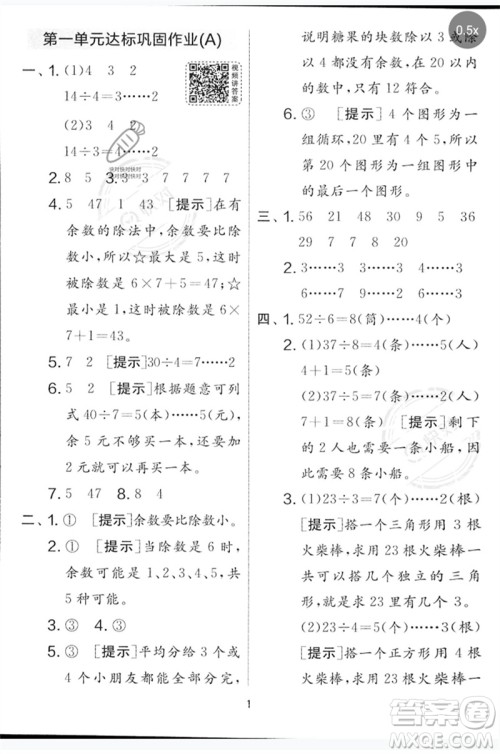 0.5x
第一单元达标巩固作业(A)
视频讲答案
一、1. (1)4 3 2
14÷4=3……2
(2)3 4 2
14÷3=4……2
2. 8 5 3. 9 7 7 7 7
4. 5 47 1 43 [提示]在有
余数的除法中,余数要比除
数小,所以☆最大是5,这时
被除数是6×7+5=47;☆
最小是1,这时被除数是6×
7+1=43。
5. 7 2 [提示]30÷4=7……2
6. 5 5 [提示]根据题意可列
式40÷7=5(本)……5(元),
余5元不够再买一本。
7. 5 47 8. 8 4
二、1. ① [提示]余数要比除数小。
2. ① [提示]当除数是6时,
余数可能是1、2、3、4、5,不
可能是6。
3. ③ 4. ③
5. ③ [提示]平均分给3个或
4个小朋友都没有剩余,
说明糖果的块数除以3或除
以2都没有余数,在这几个
选项中,只有12符合。
6. ③ [提示]4个图形为一
组循环,20里面有5个4,
第20个图形为一组图形中
最后一个图形。
三、1. 56 21 48 9 5 36
29 7 7 8 29 3
2. 3……3 6……4 4……3
6……2 3……3 7……6
四、1. 52÷6=8(筒)……4(个)
2. (1)37÷8=4(条)……5(人)
4+1=5(条)
(2)37÷5=7(条)……2(人)
7+1=8(条) [提示]剩下
的2人还需要一条小船,
因此一共需要8条小船。
3. (1)23÷3=7(个)……2(根)
[提示]搭一个三角形用3根
火柴棒,求用23根火柴棒一
共搭了几个独立的三角形,
就是求23里面有几个3。
(2)23÷4=5(个)……3(根)
[提示]搭一个正方形用4根
火柴棒,求用23根火柴棒
1